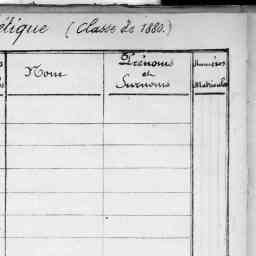 étique (Classe de 1880.)
Nom
Prénoms
et
Surnoms
Numéros
Matricules